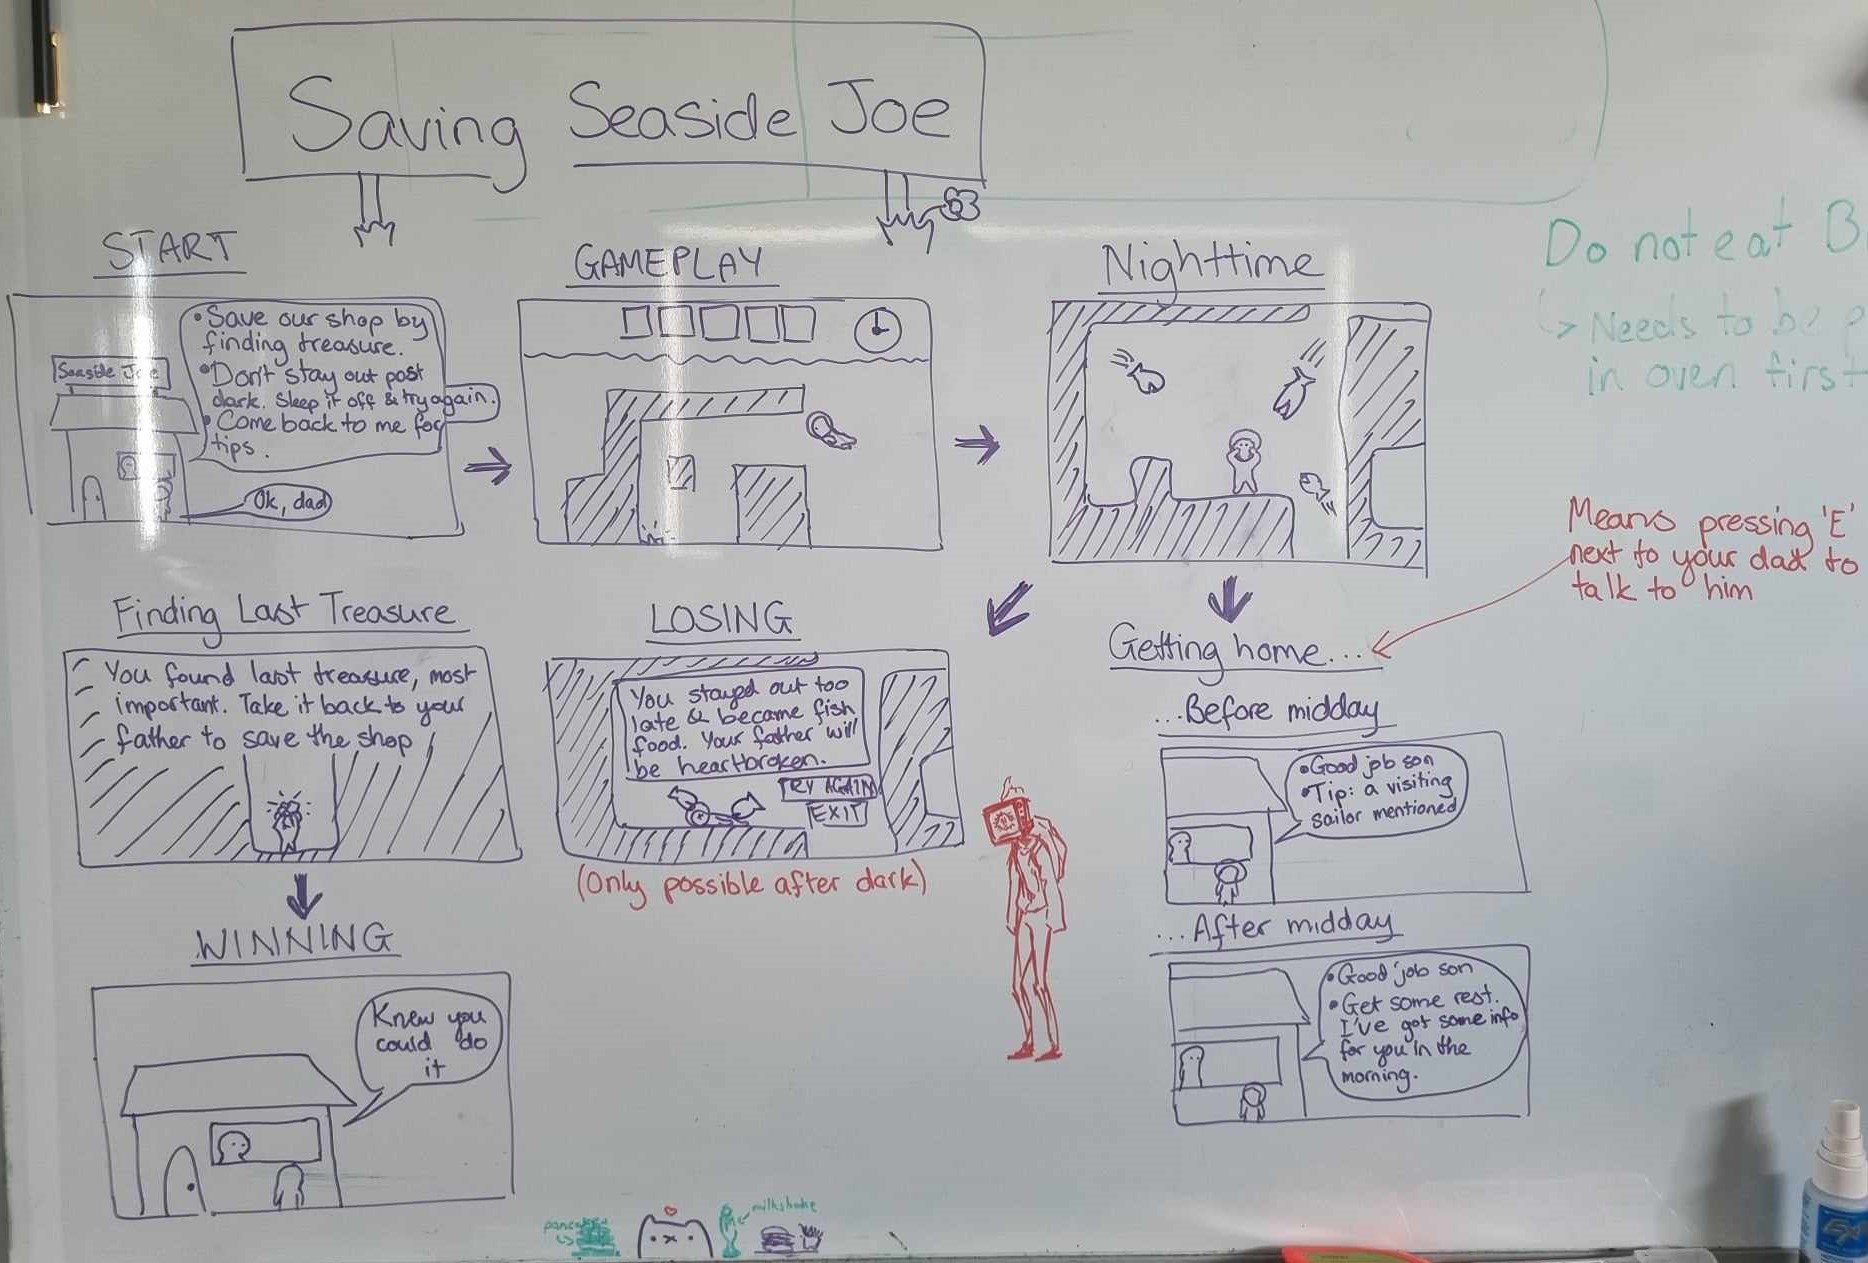 Saving Seaside Joe
START
Seaside Joe
• Save our shop by
finding treasure.
• Don't stay out past
dark. Sleep it off & try again.
• Come back to me for
tips.
Ok, dad
GAMEPLAY
Nighttime
Do not eat B
↳ Needs to be
in oven first
Means pressing 'E'
next to your dad to
talk to him
Finding Last Treasure
You found last treasure, most
important. Take it back to your
father to save the shop
LOSING
You stayed out too
late & became fish
food. Your father will
be heartbroken.
TRY AGAIN
EXIT
(Only possible after dark)
Getting home...
...Before midday
• Good job son
• Tip: a visiting
sailor mentioned
...After midday
• Good job son
• Get some rest.
I've got some info
for you in the
morning.
WINNING
Knew you
could do
it
milkshake